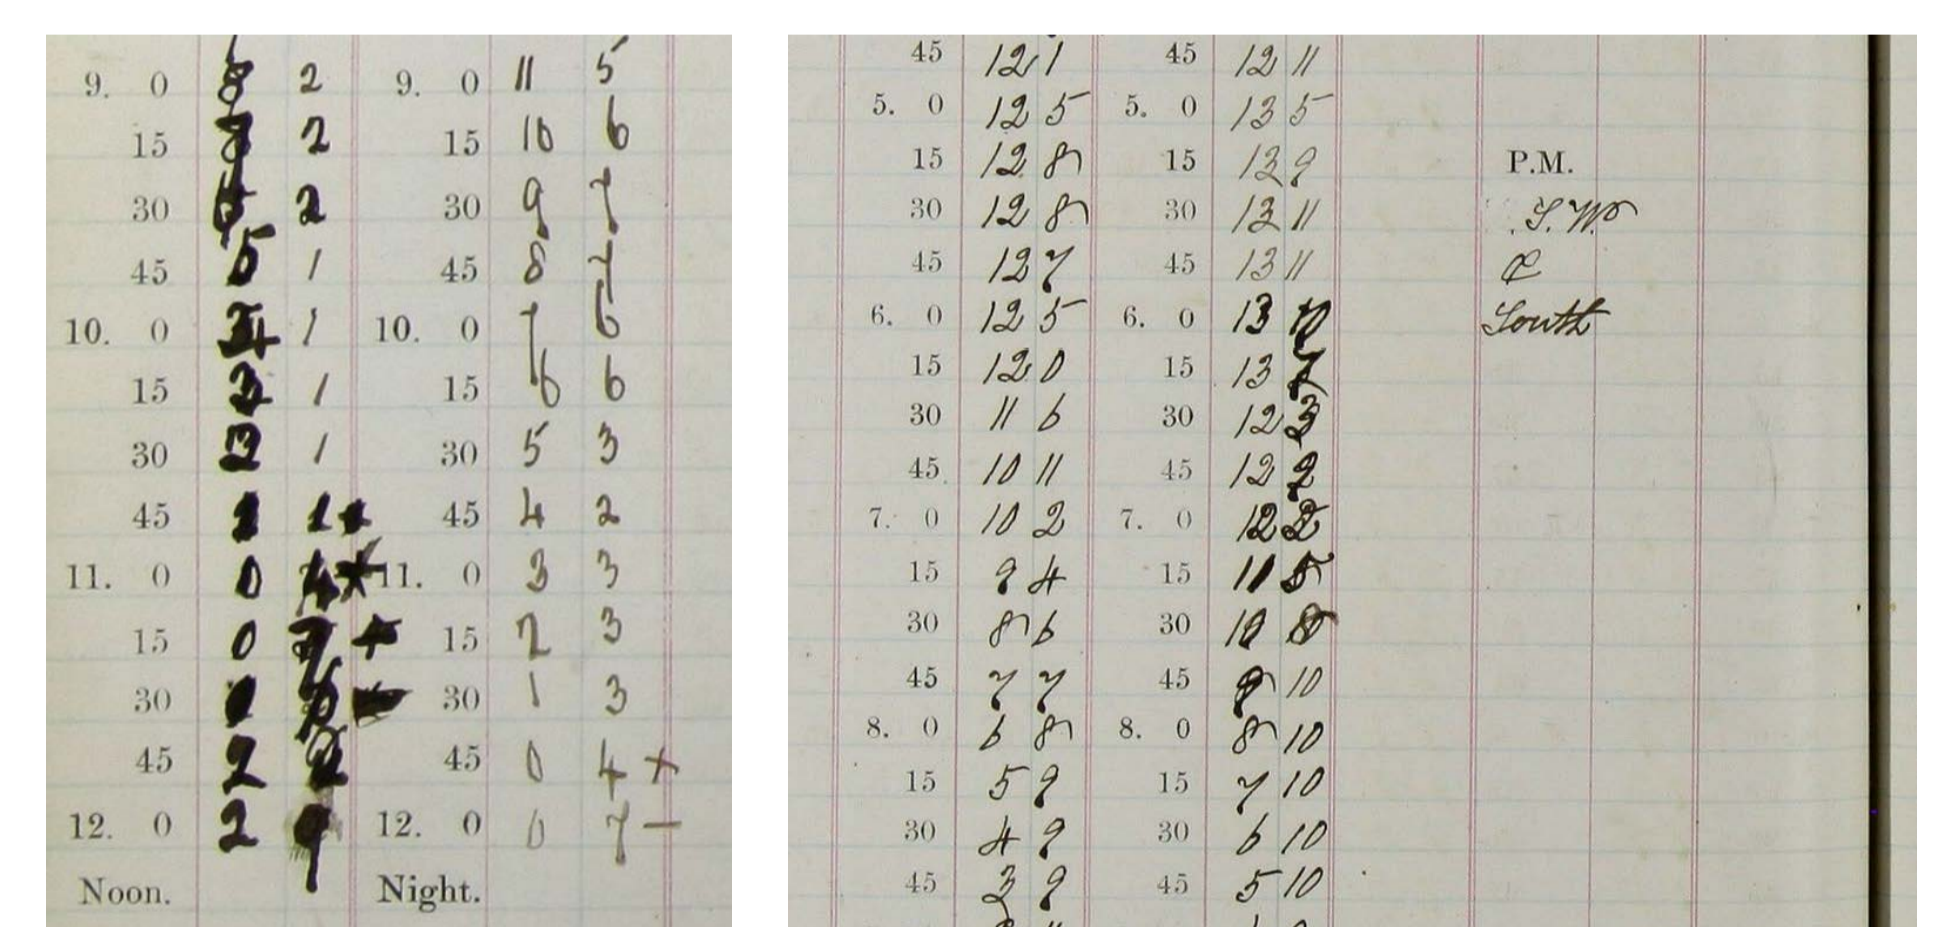 9. 0 8 2 9. 0 11 5
15 2 15 10 6
30 2 30 9 7
45 5 1 45 8 7
10. 0 1 10. 0 7 6
15 1 15 6 6
30 1 30 5 3
45 45 4 2
11. 0 0 11. 0 3 3
15 0 15 2 3
30 30 1 3
45 2 45 0 4 +
12. 0 2 9 12. 0 0 7 –
Noon. Night.
45 12 1 45 12 11
5. 0 12 5 5. 0 13 5
15 12 8 15 13 9 P.M.
30 12 8 30 13 11 S.W.
45 12 7 45 13 11
6. 0 12 5 6. 0 13 10 South
15 12 0 15 13 7
30 11 6 30 12 3
45 10 11 45 12 2
7. 0 10 2 7. 0 12 2
15 9 4 15 11 5
30 8 6 30 10 8
45 7 7 45 9 10
8. 0 6 8 8. 0 8 10
15 5 9 15 7 10
30 4 9 30 6 10
45 3 9 45 5 10